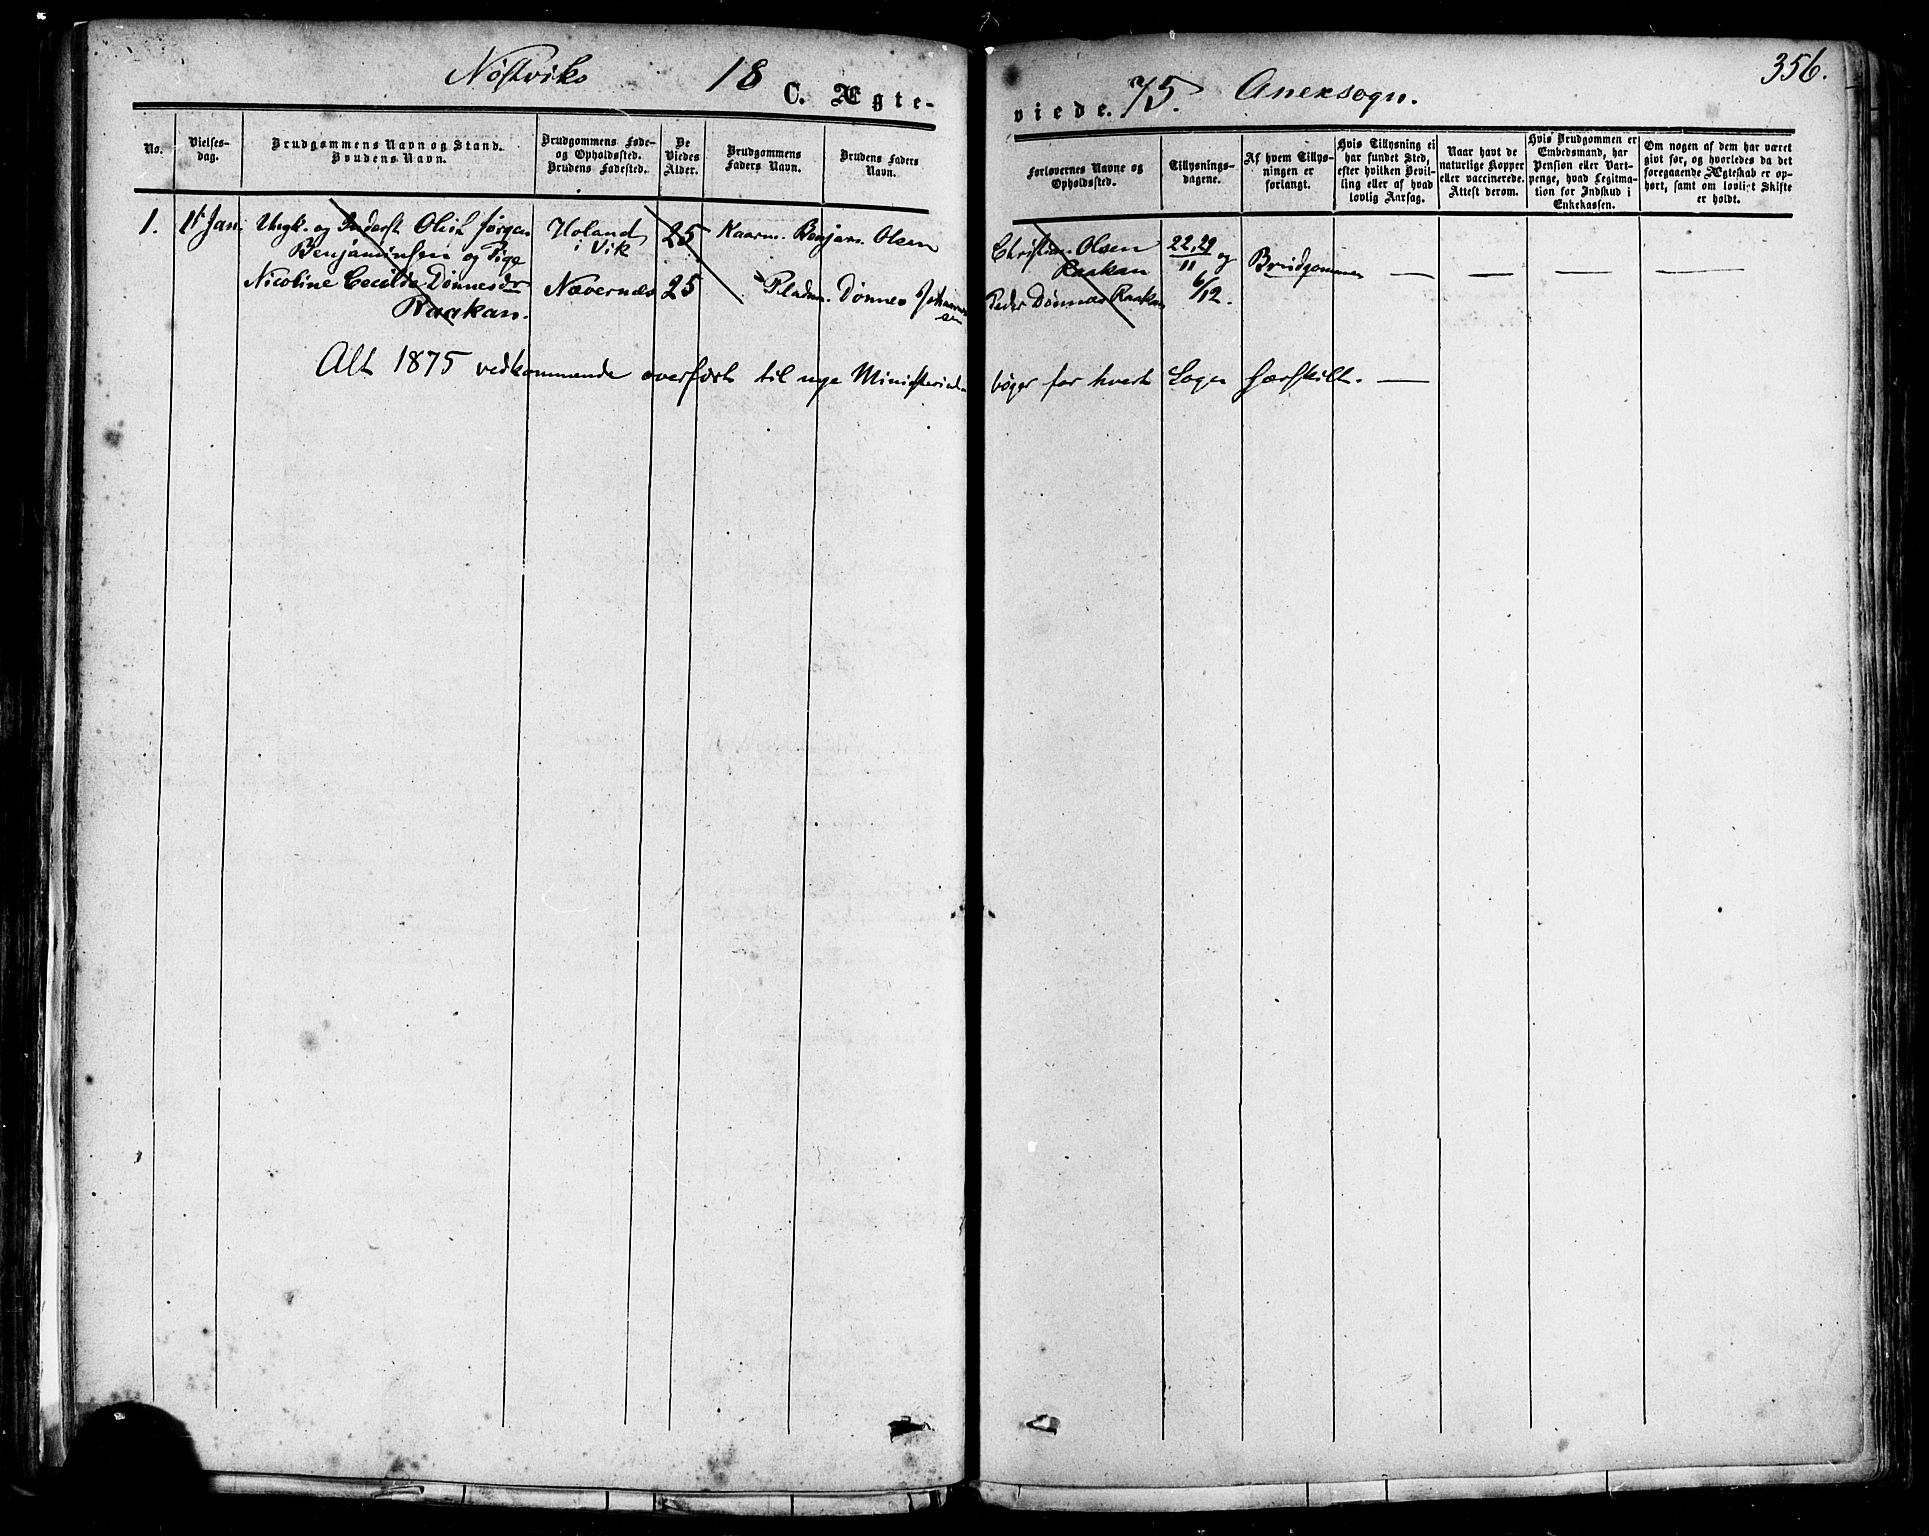 Nøstviks 18
C. Ægte-
viede. 75. Aneksogn.
356.
No.
Vielses-
dag.
Brudgommens Navn og Stand.
Brudens Navn.
Brudgommens Føde-
og Opholdssted.
Brudens Fødested.
De
Viedes
Alder.
Brudgommens
Faders Navn.
Brudens Faders
Navn.
Forlovernes Navne og
Opholdssted.
Tillysnings-
dagene.
Af hvem Tillys-
ningen er
forlangt.
Hvis Tillysning ei
har fundet Sted,
efter hvilken Bevil-
ling eller af hvad
lovlig Aarsag.
Naar havt de
naturlige Kopper
eller vaccinerede.
Attest derom.
Hvis Brudgommen er
Embedsmand, har
Pension eller Vart-
penge, hvad Legitma-
tion for Indskud i
Enkekassen.
Om nogen af dem har været
givt før, og hvorledes da det
foregaaende Ægteskab er op-
hørt, samt om lovligt Skifte
er holdt.
1. 1st Jan. Ungk. og Inderst Oluf Jørgen
Benjaminsen og Pige
Nicoline Cecilde Dønnesdr
Raakan.
Holand
i Vik
Nævernes
25
25
Kaarm. Benjam. Olsen
Pladsm. Dønnes Johannes
sen
Christian Olsen
Raakan
Peder Dønnes Raakan
22, 29
11 og
6/12.
Brudgommen — — — —
Alt 1875 vedkommende overført til nye Ministerial
bøger for hvert Sogn særskilt. —